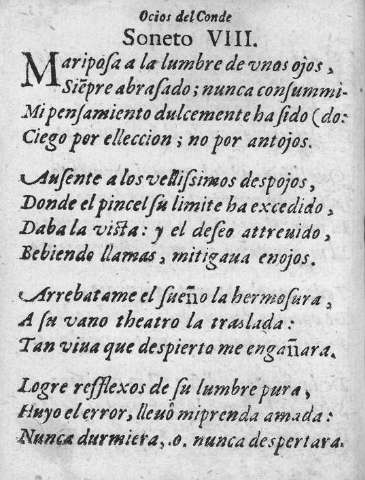 Ocios del Conde
Soneto VIII.
Mariposa a la lumbre de vnos ojos,
Siẽpre abrasado; nunca consummi-
Mi pensamiento dulcemente ha sido (do:
Ciego por elleccion; no por antojos.
Ausente a los vellissimos despojos,
Donde el pincel su limite ha excedido,
Daba la vista: y el deseo attreuido,
Bebiendo llamas, mitigaua enojos.
Arrebatame el sueño la hermosura,
A su vano theatro la traslada:
Tan viua que despierto me engañara.
Logre resfflexos de su lumbre pura,
Huyo el error, lleuô miprenda amada:
Nunca durmiera, .o. nunca despertara.